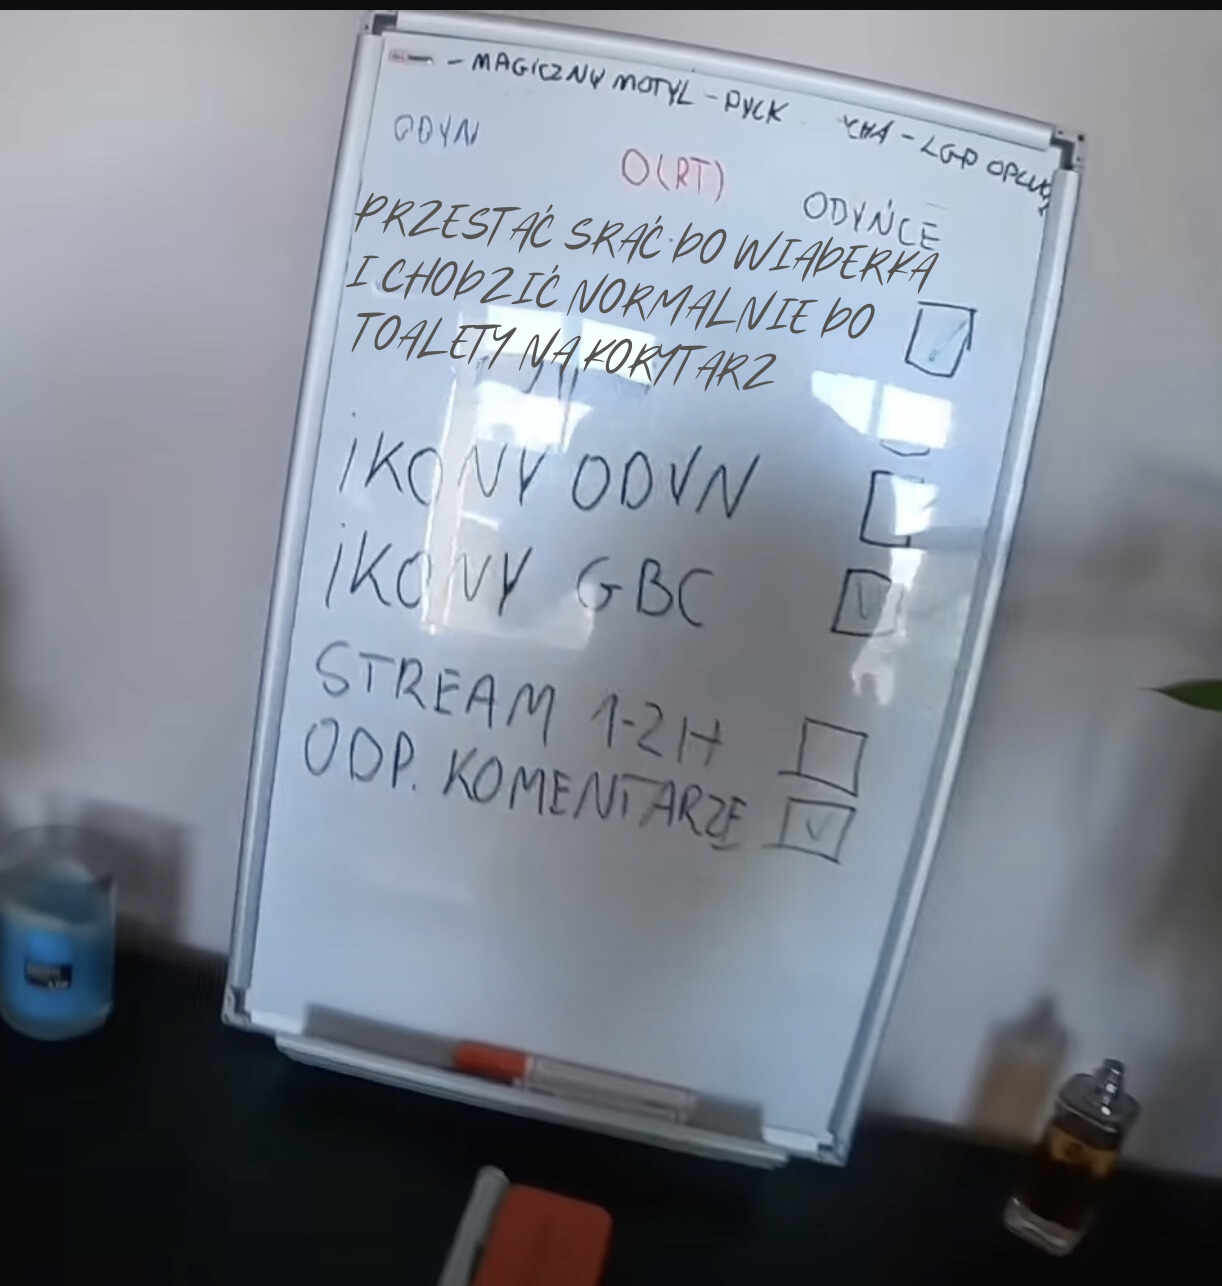 - MAGICZNY MOTYL - PYCK
ODYN
O(RT)
ODYŃCE
PRZESTAĆ SRAĆ DO WIADERKA
I CHODZIĆ NORMALNIE DO
TOALETY NA KORYTARZ
IKONY ODYN
IKONY GBC
STREAM 1-2H
ODP. KOMENTARZE